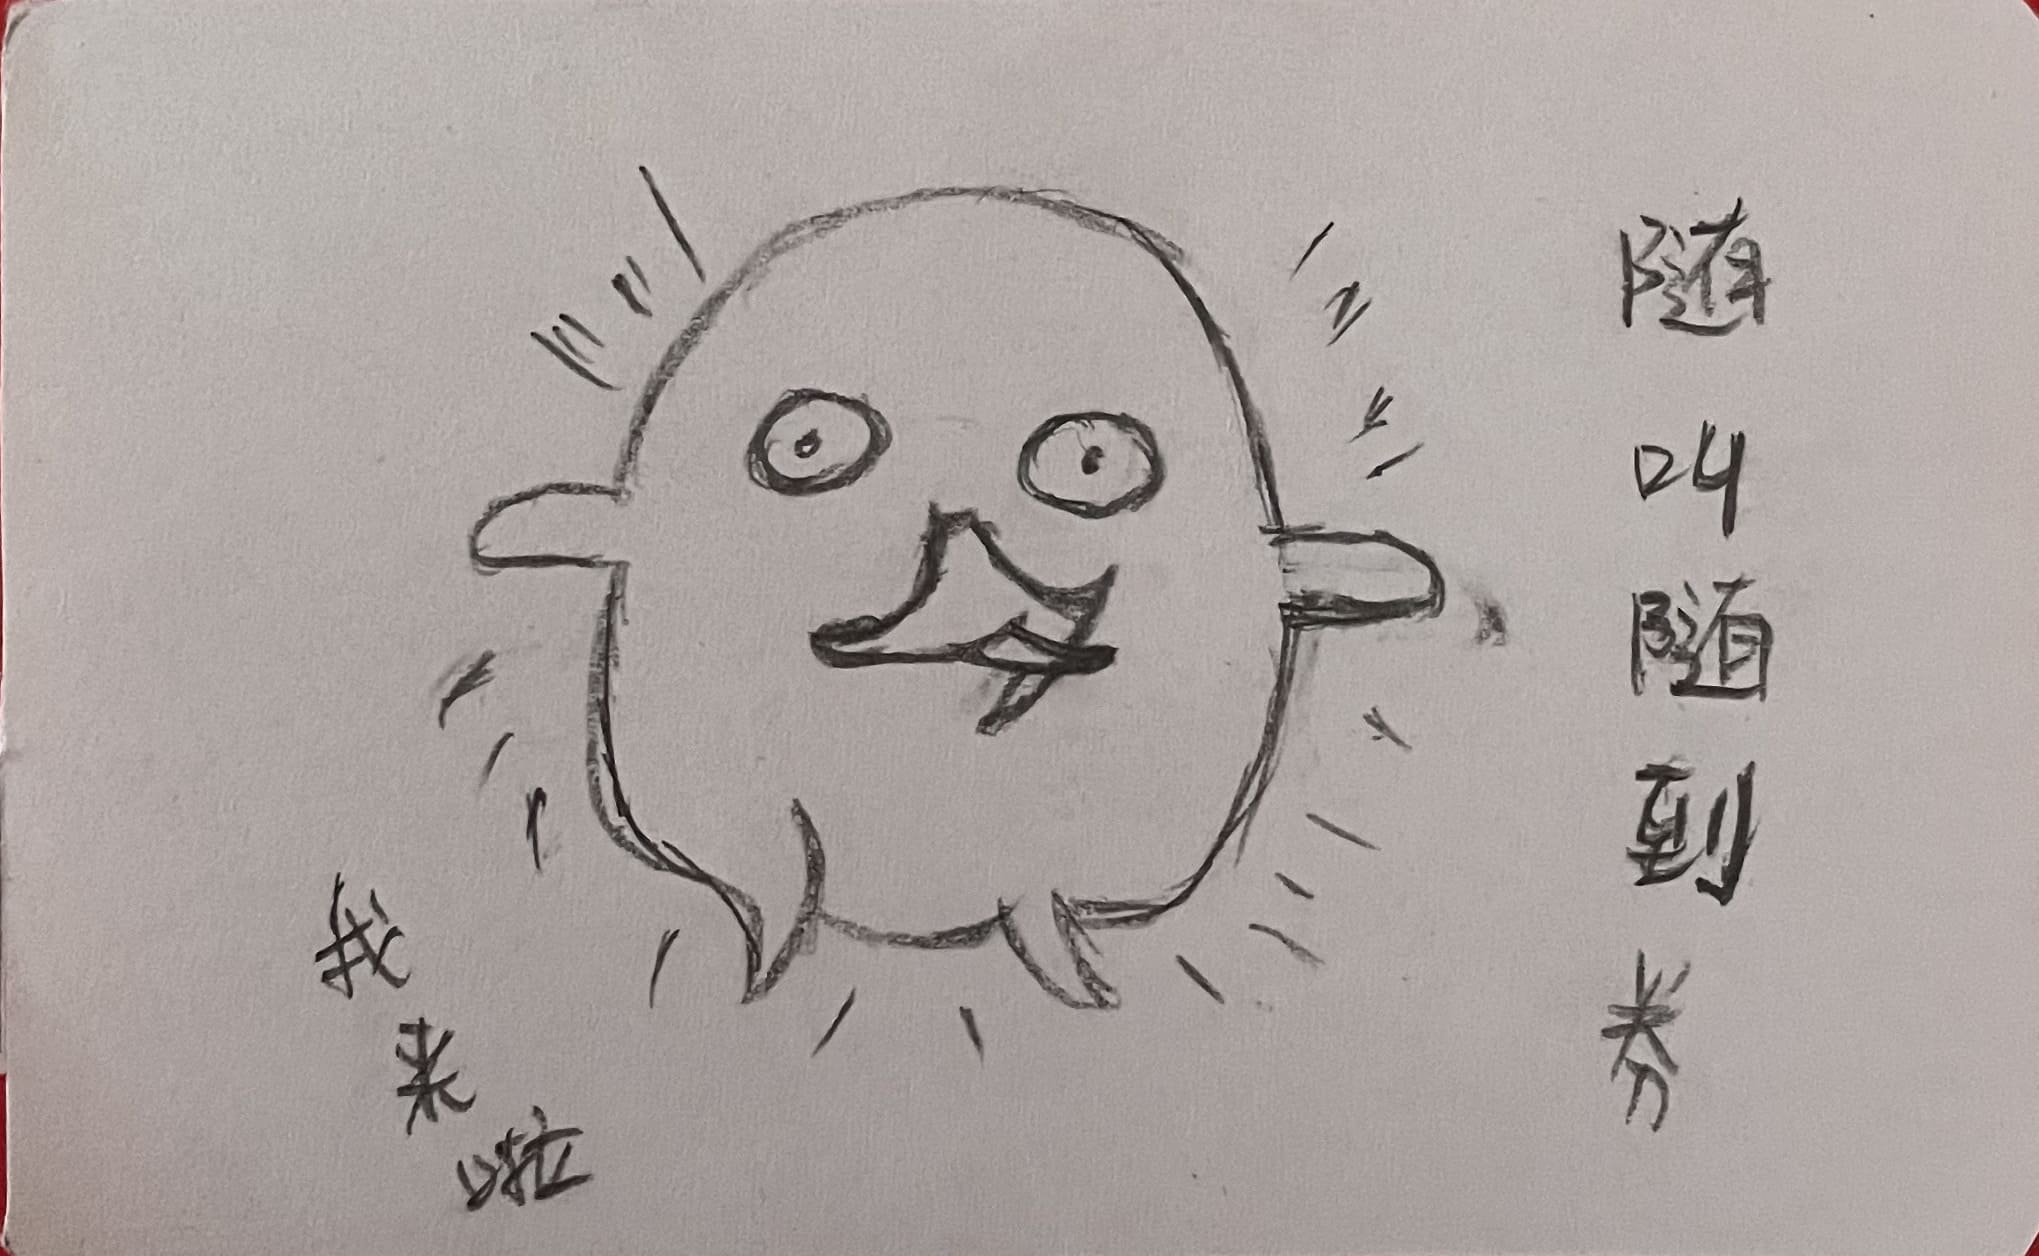 随叫随到券
我来啦